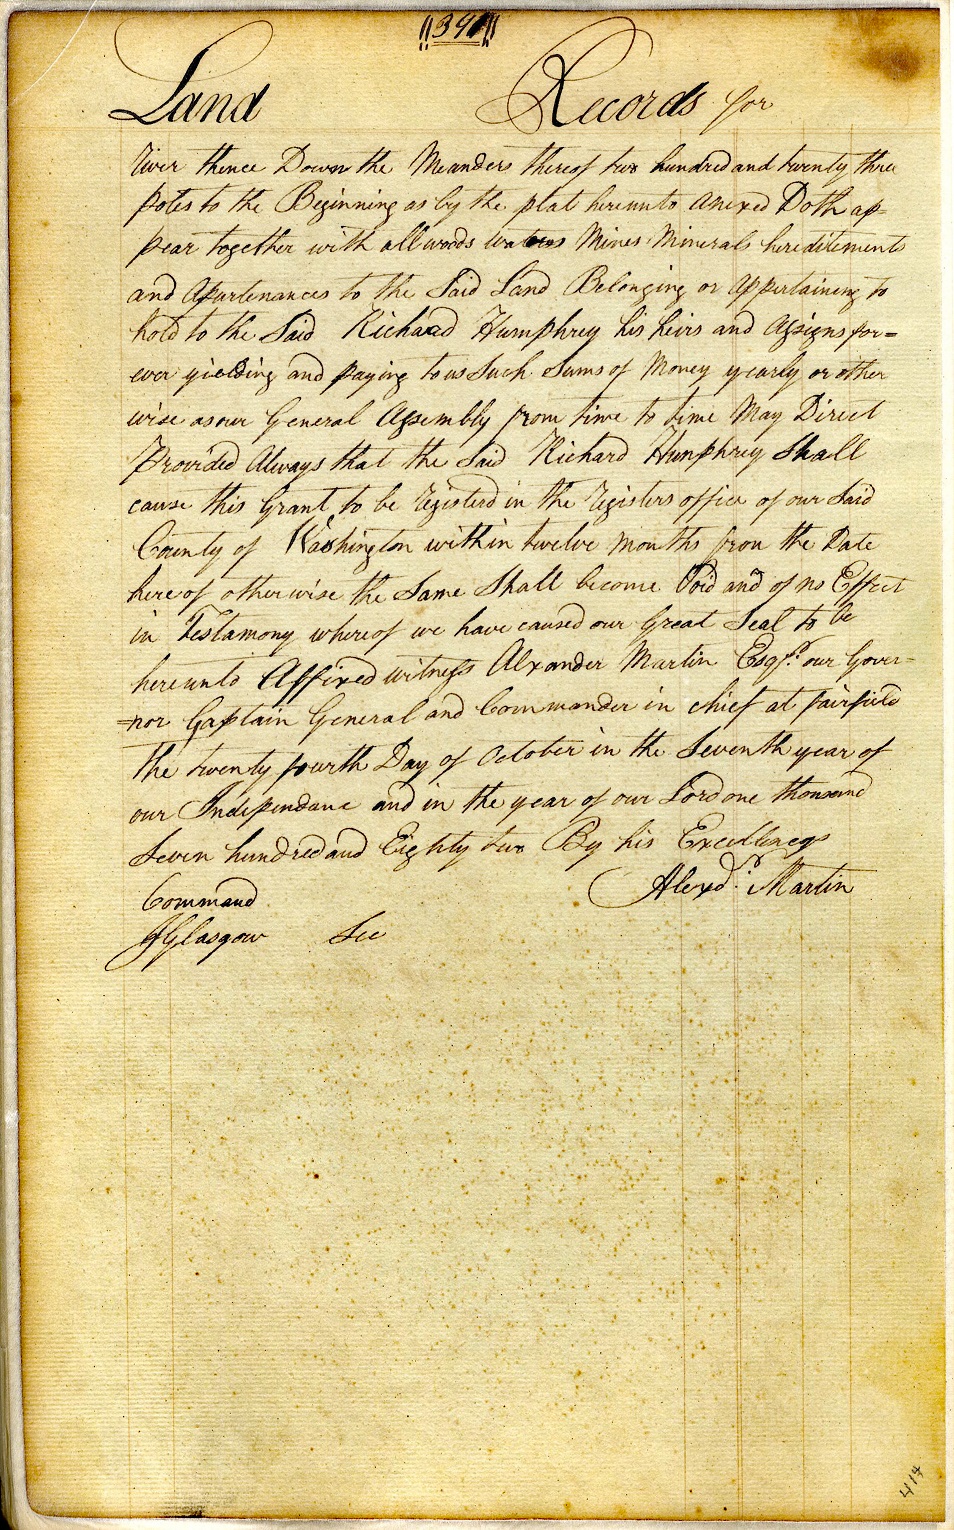 391
Land Records for
River thence Down the Meanders thereof two hundred and twenty three
poles to the Beginning as by the plat hereunto anexed Doth ap=
pear together with all woods waters Mines Minerals hereditements
and Apurtenances to the Said Land Belonging or appertaining to
hold to the Said Richard Humphrey his heirs and assigns for=
ever yielding and paying to us Such Sums of Money yearly or other
wise as our General Assembly from time to time May Direct
Provided Always that the Said Richard Humphrey Shall
cause this Grant to be Registerd in the Registers office of our Said
County of Washington within twelve months from the Date
hereof otherwise the Same Shall become Void and of no Effect
in Testamony whereof we have caused our Great Seal to be
hereunto Affixed witness Alexander Martin Esqr. our Gover=
=nor Captain General and Commander in chief at Fairfield
the twenty fourth Day of October in the Seventh year of
our Independance and in the year of our Lord one thousand
Seven hundred and Eighty two By his Excellencys
Command Alexdr. Martin
J Glasgow Sec
417